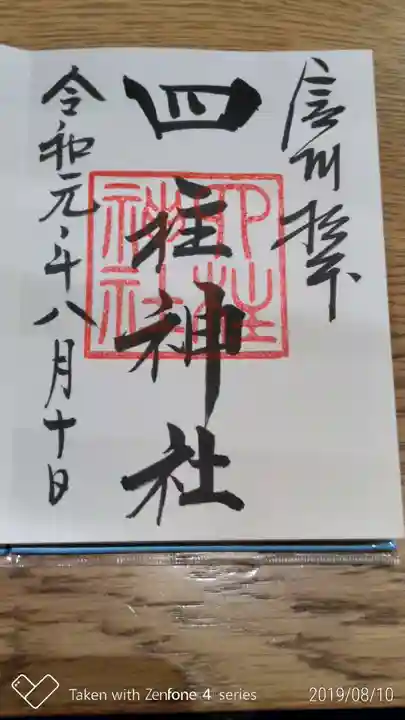 信州松本
四柱神社
四柱
神社
令和元年八月十日
Taken with Zenfone 4 series
2019/08/10